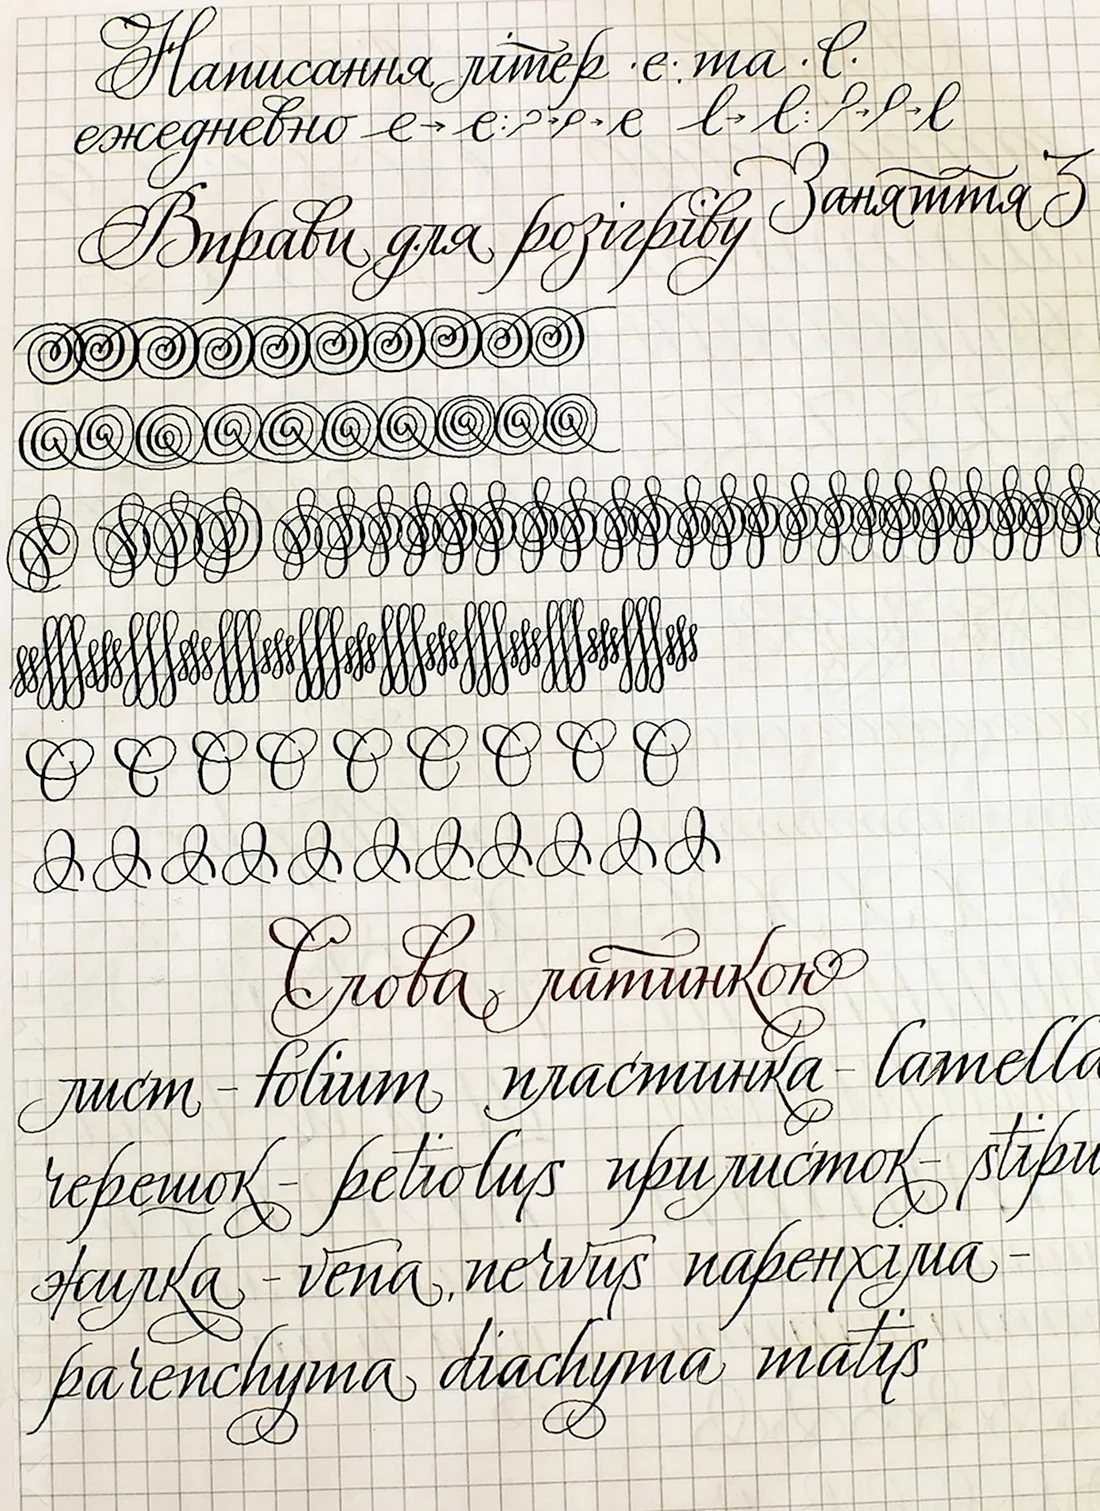 Написання літер ·е· та ·l·
ежедневно e → e: → → e l → l: → → l
Заняття 3
Вправи для розігріву
Слова латинкою
лист - folium пластинка - lamella
черешок - petiolus прилисток - stipu
жилка - vena, nervus паренхіма -
parenchyma diachyma matis